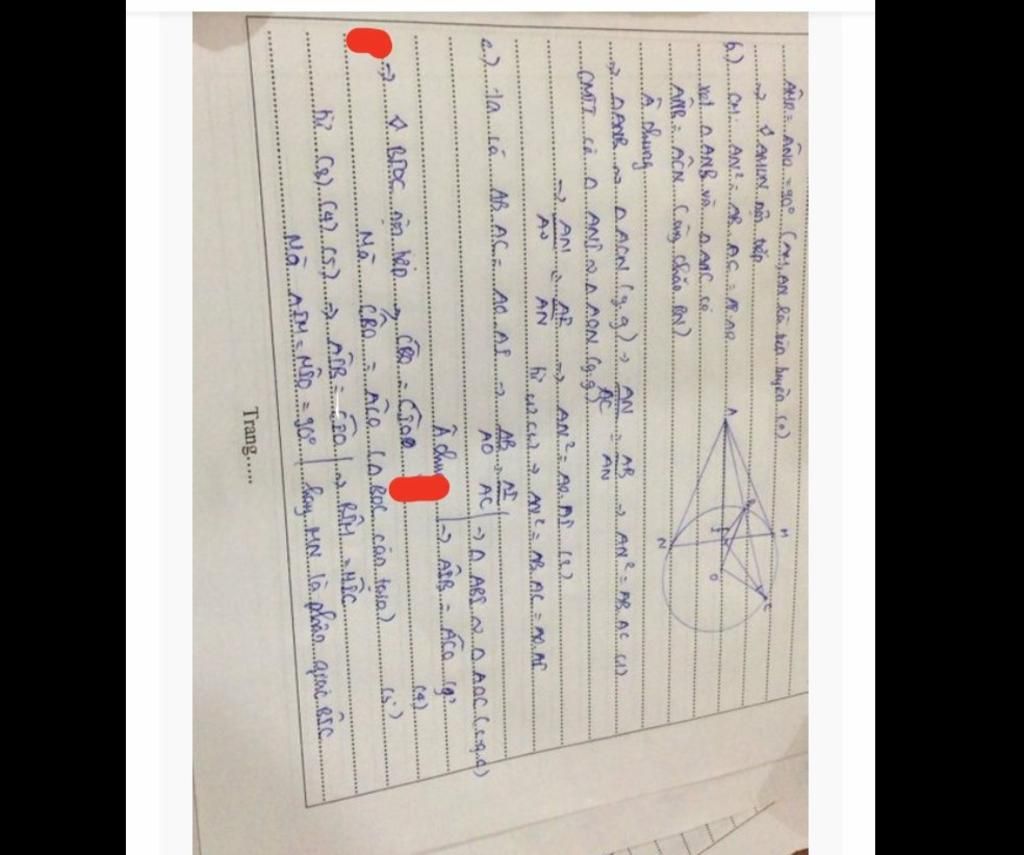 AMO = ANO = 90° (AM, AN là tiếp tuyến (O))
=> ◊ AMON nội tiếp
b.) CM: AN² = AB. AC = AI. AO
Xét Δ ANB và Δ ANC có
ANB = ACN (cùng chắn BN)
Â chung
=> Δ ANB ~ Δ ACN (g.g) => AN/AC = AB/AN => AN² = AB. AC (1)
CMTT có Δ ANI ~ Δ AON (g.g)
=> AN/AO = AI/AN => AN² = AO. AI (2)
từ (1) (2) => AN² = AB. AC = AO. AI
c.) Ta có AB. AC = AO. AI => AB/AO = AI/AC | => Δ ABI ~ Δ AOC (c.g.c)
Â chung | => AIB = ACO (3)
=> ◊ BIOC nội tiếp => CBO = CIO (4)
Mà CBO = ACO (Δ BOC cân tại O) (5)
từ (3) (4) (5) => AIB = CIO | => BIM = MIC
Mà AIM = MIO = 90° | hay MN là phân giác BIC
Trang.....